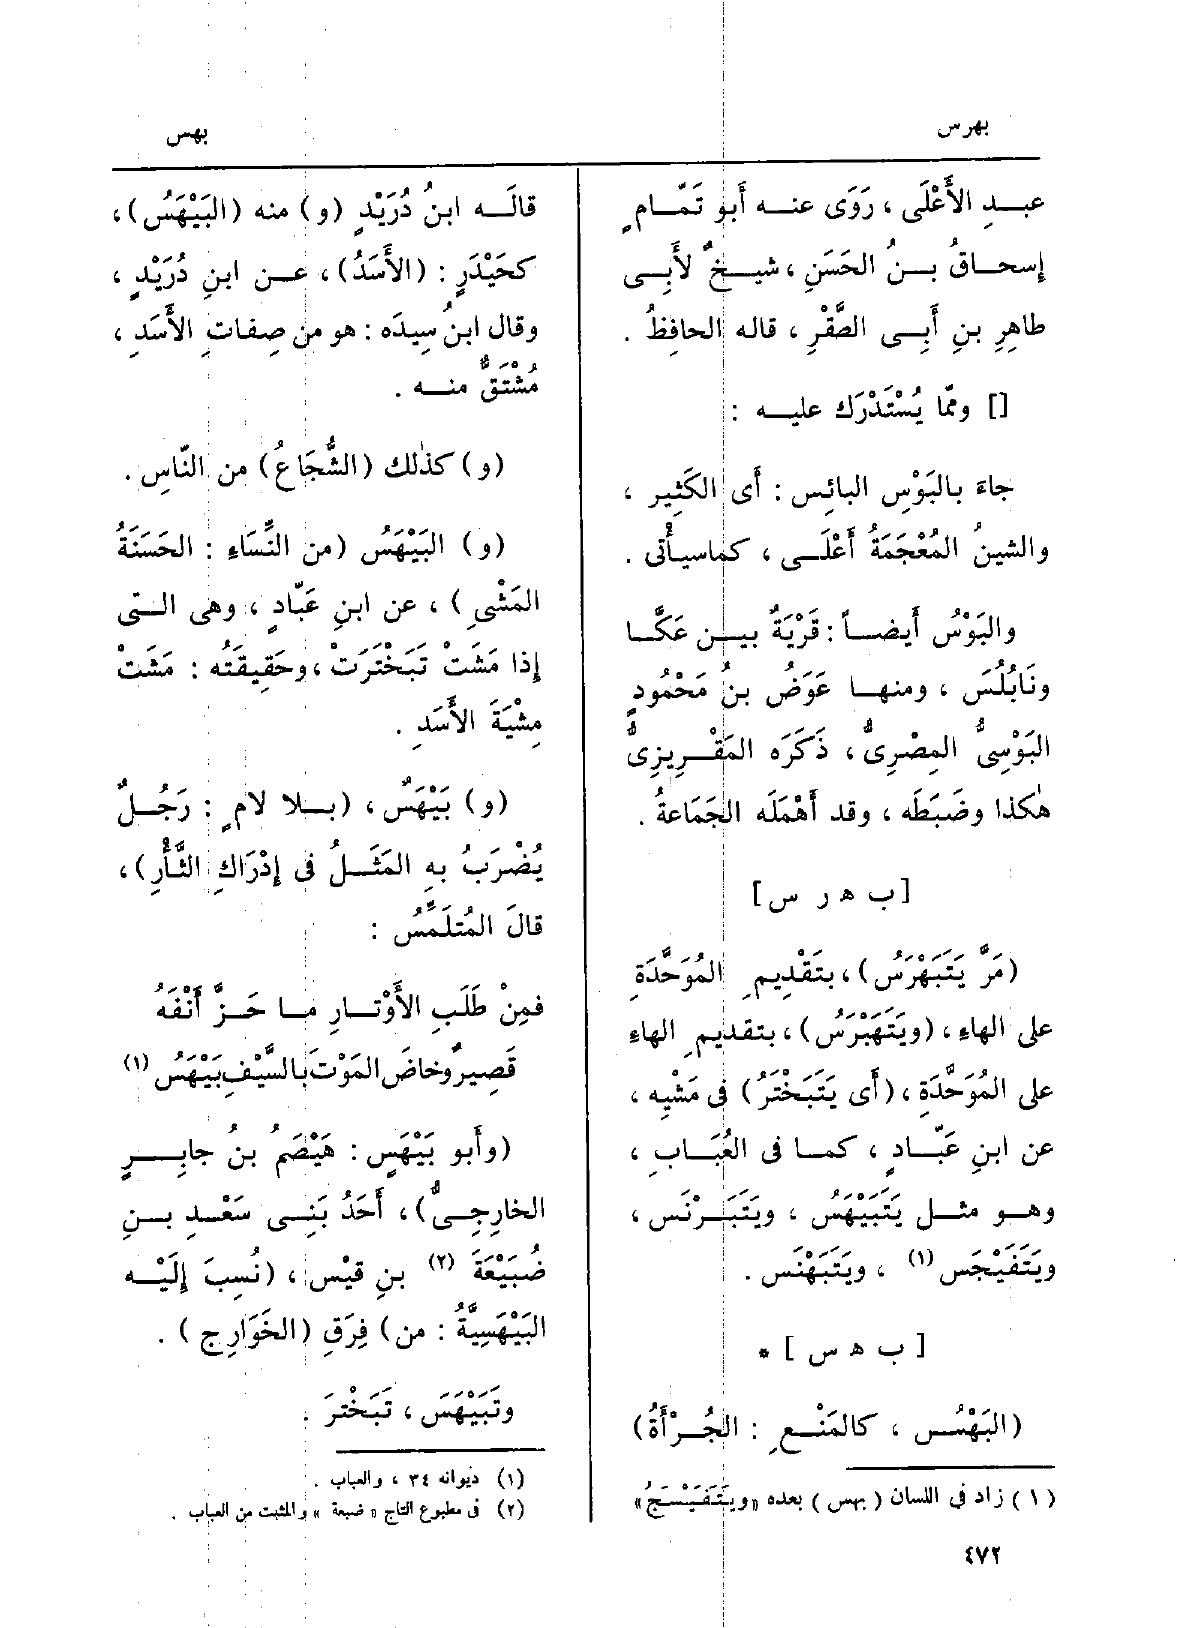 بهرس
بهس
عبـد الأَعْلَى ، رَوَى عنـه أَبو تَمّـامٍ
إسحـاقُ بـنُ الحَسَنِ ، شيـخٌ لأَبِـى
طاهِرِ بنِ أَبِـى الصَّقْرِ ، قاله الحافِظُ .
[] وممّا يُسْتَدْرَك عليـه :
جاءَ بالبَوْسِ البائِس : أَى الكَثِير ،
والشينُ المُعْجَمَةُ أَعْلَـى ، كماسيأْتى .
والبَوْسُ أَيضـاً : قَرْيَةٌ بيـن عَكَّـا
ونَابُلُسَ ، ومنهـا عَوَضُ بنُ مَحْمُودٍ
البَوْسِىُّ المِصْرِىُّ ، ذَكَرَه المَقْـرِيزِىُّ
هٰكذا وضَبَطَه ، وقد أَهْمَلَه الجَمَاعةُ .
[ ب ه ر س ]
(مَرَّ يَتَبَهْرَسُ) ، بتَقْدِيمِ المُوَحَّدَةِ
على الهاءِ ، (ويَتَهَبْرَسُ) ، بتقديمِ الهاءِ
على المُوَحَّدَةِ ، (أَى يَتَبَخْتَرُ) فى مَشْيِه ،
عن ابنِ عَبّـادٍ ، كمـا فى العُبَـابِ ،
وهـو مثـل يَتَبَيْهَسُ ، ويَتَبَـرْنَس ،
ويَتَفَيْجَس (١) ، ويَتَبَهْنَس .
[ ب ه س ] *
(البَهْـُس ، كالمَنْـعِ : الجُـرْأَةُ)
(١) زاد فى اللسان ( بهس ) بعده «ويَتَفَيْسَـجُ»
قالَـه ابنُ دُرَيْدٍ (و) منه (البَيْهَسُ) ،
كحَيْدَرٍ : (الأَسَدُ) ، عـن ابنِ دُرَيْدٍ ،
وقال ابنُ سِيدَه : هو من صِفاتِ الأَسَدِ ،
مُشْتَقٌّ منـه .
(و) كذٰلك (الشُّجَاعُ) من النّاسِ .
(و) البَيْهَسُ (من النِّسَاءِ : الحَسَنَةُ
المَشْىِ) ، عن ابنِ عَبّادٍ ، وهى الـتى
إذا مَشَتْ تَبَخْتَرَتْ ، وحَقِيقَتُه : مَشَتْ
مِشْيَةَ الأَسَدِ .
(و) بَيْهَسٌ ، (بـلا لامٍ : رَجُـلٌ
يُضْرَبُ بِهِ المَثَـلُ فى إِدْرَاكِ الثَّأْرِ) ،
قالَ المُتلَمِّسُ :
فمِنْ طَلَبِ الأَوْتـارِ مـا حَـزَّ أَنْفَهُ
قَصِيرٌ وخاضَ المَوْتَ بالسَّيْفِ بَيْهَسُ (١)
(وأَبو بَيْهَسٍ : هَيْصَمُ بنُ جابِـرٍ
الخارِجِـىُّ) ، أَحَدُ بَنِـى سَعْـدِ بـنِ
ضُبَيْعَةَ (٢) بنِ قَيْس ، (نُسِبَ إِلَيْـه
البَيْهَسِيَّةُ : من) فِرَقِ (الخَوَارِجِ) .
وتَبَيْهَسَ ، تَبَخْتَرَ .
(١) ديوانه ٣٤ ، والعباب .
(٢) فى مطبوع التاج « ضبعة » والمثبت من العباب .
٤٧٢